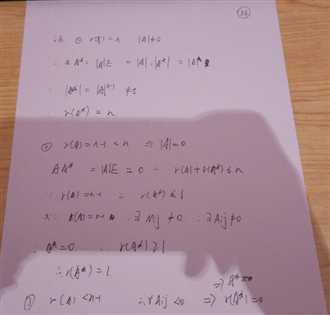 36
证 ① r(A)=n |A|≠0
∴ AA* = |A|E = |A|·|A*| = |A|ⁿ
∴ |A*| = |A|ⁿ⁻¹ ≠0
∴ r(A*) = n
② r(A)=n-1 < n ⇒ |A|=0
AA* = |A|E = 0 ∴ r(A)+r(A*)≤n
∵ r(A)=n-1 ∴ r(A*)≤1
又∵ r(A)=n-1 ∴ ∃ Mij ≠0 ∴ ∃ Aij ≠0
∴ A* ≠0 ∴ r(A*)≥1
∴ r(A*)=1
③ r(A) < n-1 ⇒ r(A*)=0